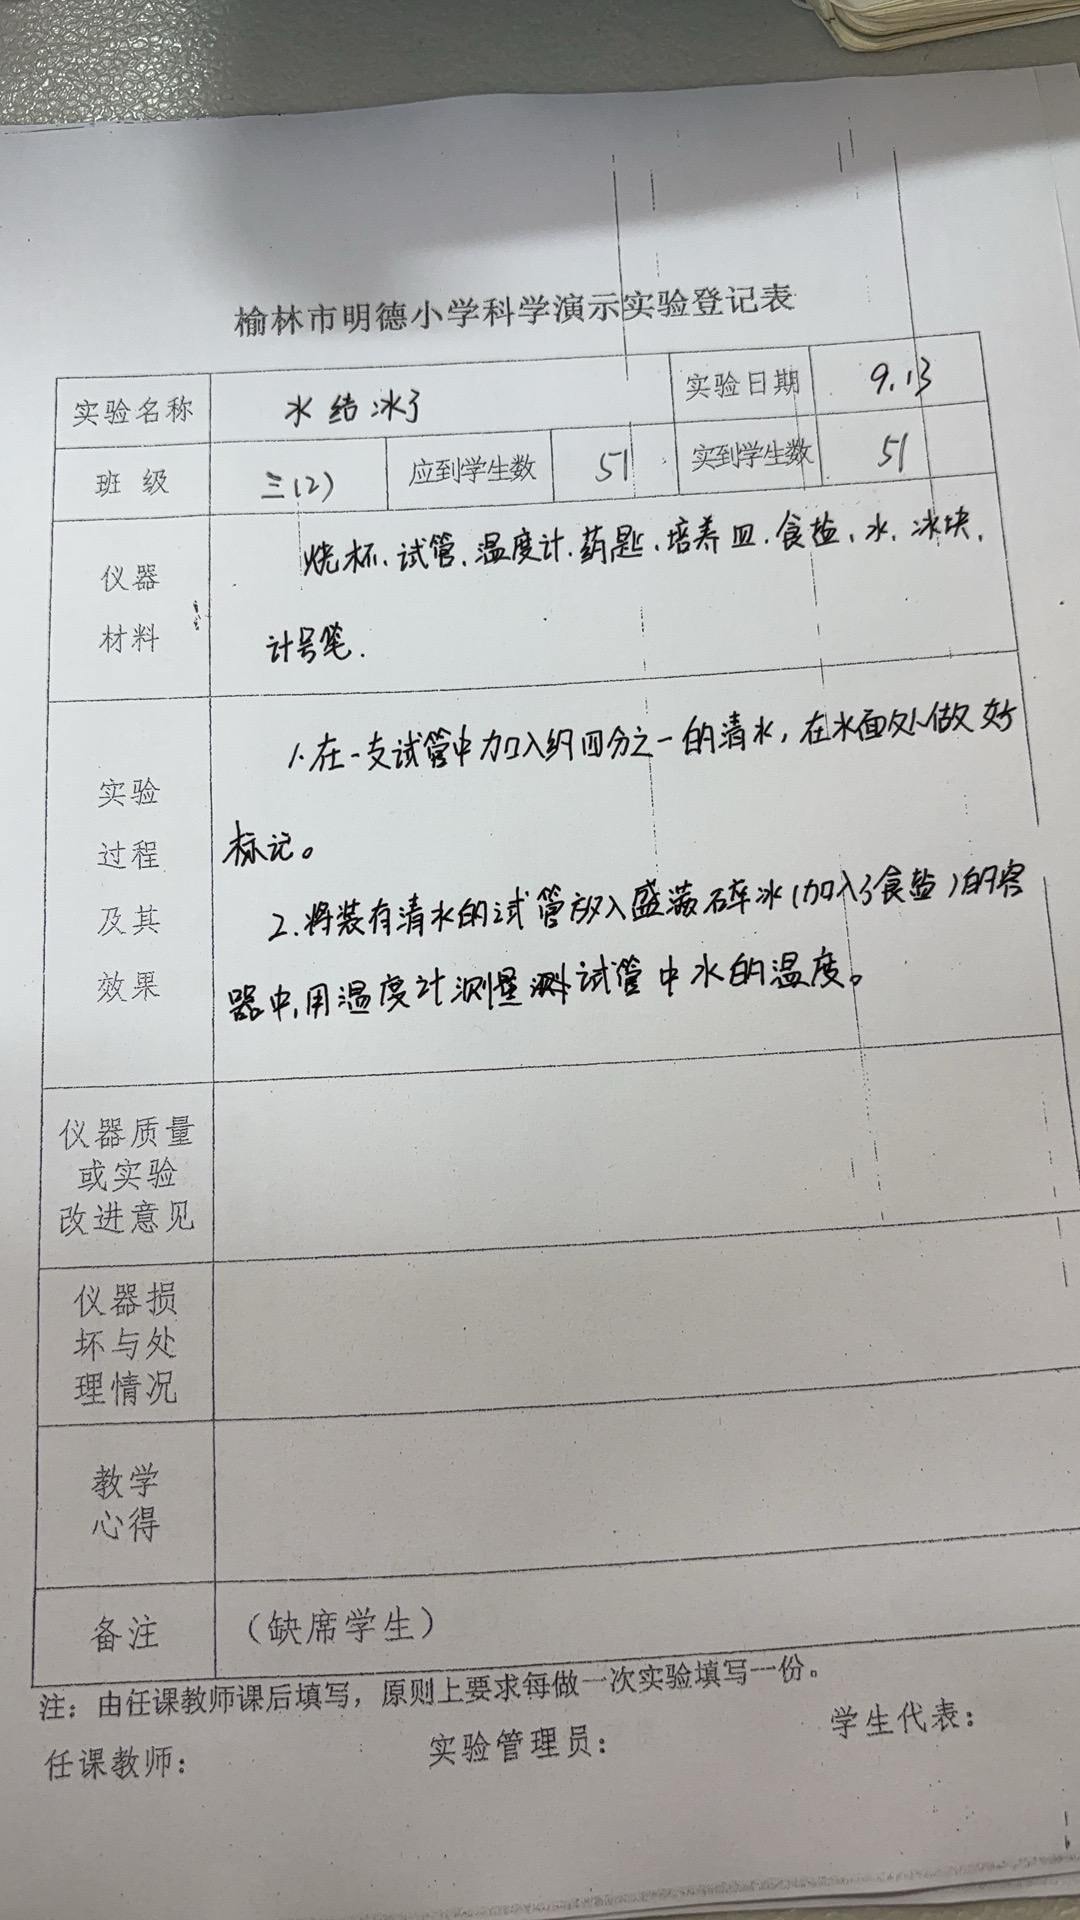 榆林市明德小学科学演示实验登记表
实验名称 水结冰了 实验日期 9.13
班 级 三(2) 应到学生数 51 实到学生数 51
仪器
材料
烧杯、试管、温度计、药匙、培养皿、食盐、水、冰块、
计号笔.
实验
过程
及其
效果
1.在一支试管中加入约四分之一的清水,在水面处做好
标记。
2.将装有清水的试管放入盛满碎冰(加入了食盐)的容
器中,用温度计测量试管中水的温度。
仪器质量
或实验
改进意见
仪器损
坏与处
理情况
教学
心得
备注 (缺席学生)
注:由任课教师课后填写,原则上要求每做一次实验填写一份。
任课教师: 实验管理员: 学生代表: